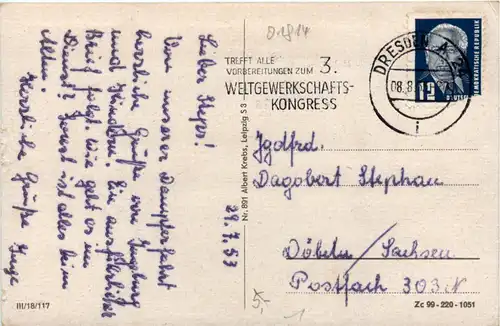 D1814
Lieber Steper!
Von unserer Dampferfahrt
herzliche Grüße von Ingeborg
und Ein ausführlicher
Brief folgt. Wie geht es im
Dienst? Sonst ist alles beim
Alten.
Herzliche Grüße Inge
29.7.53
III/18/117
Nr. 891 Albert Krebs, Leipzig S 3
TREFFT ALLE
VORBEREITUNGEN ZUM 3.
WELTGEWERKSCHAFTS-
KONGRESS
DRESDEN A 24
08.8.
i
DEUTSCHE DEMOKRATISCHE REPUBLIK
12
Jgdfrd.
Dagobert Stephan
Döbeln / Sachsen
Postfach 303 N
5,-
1
Zc 99-220-1051